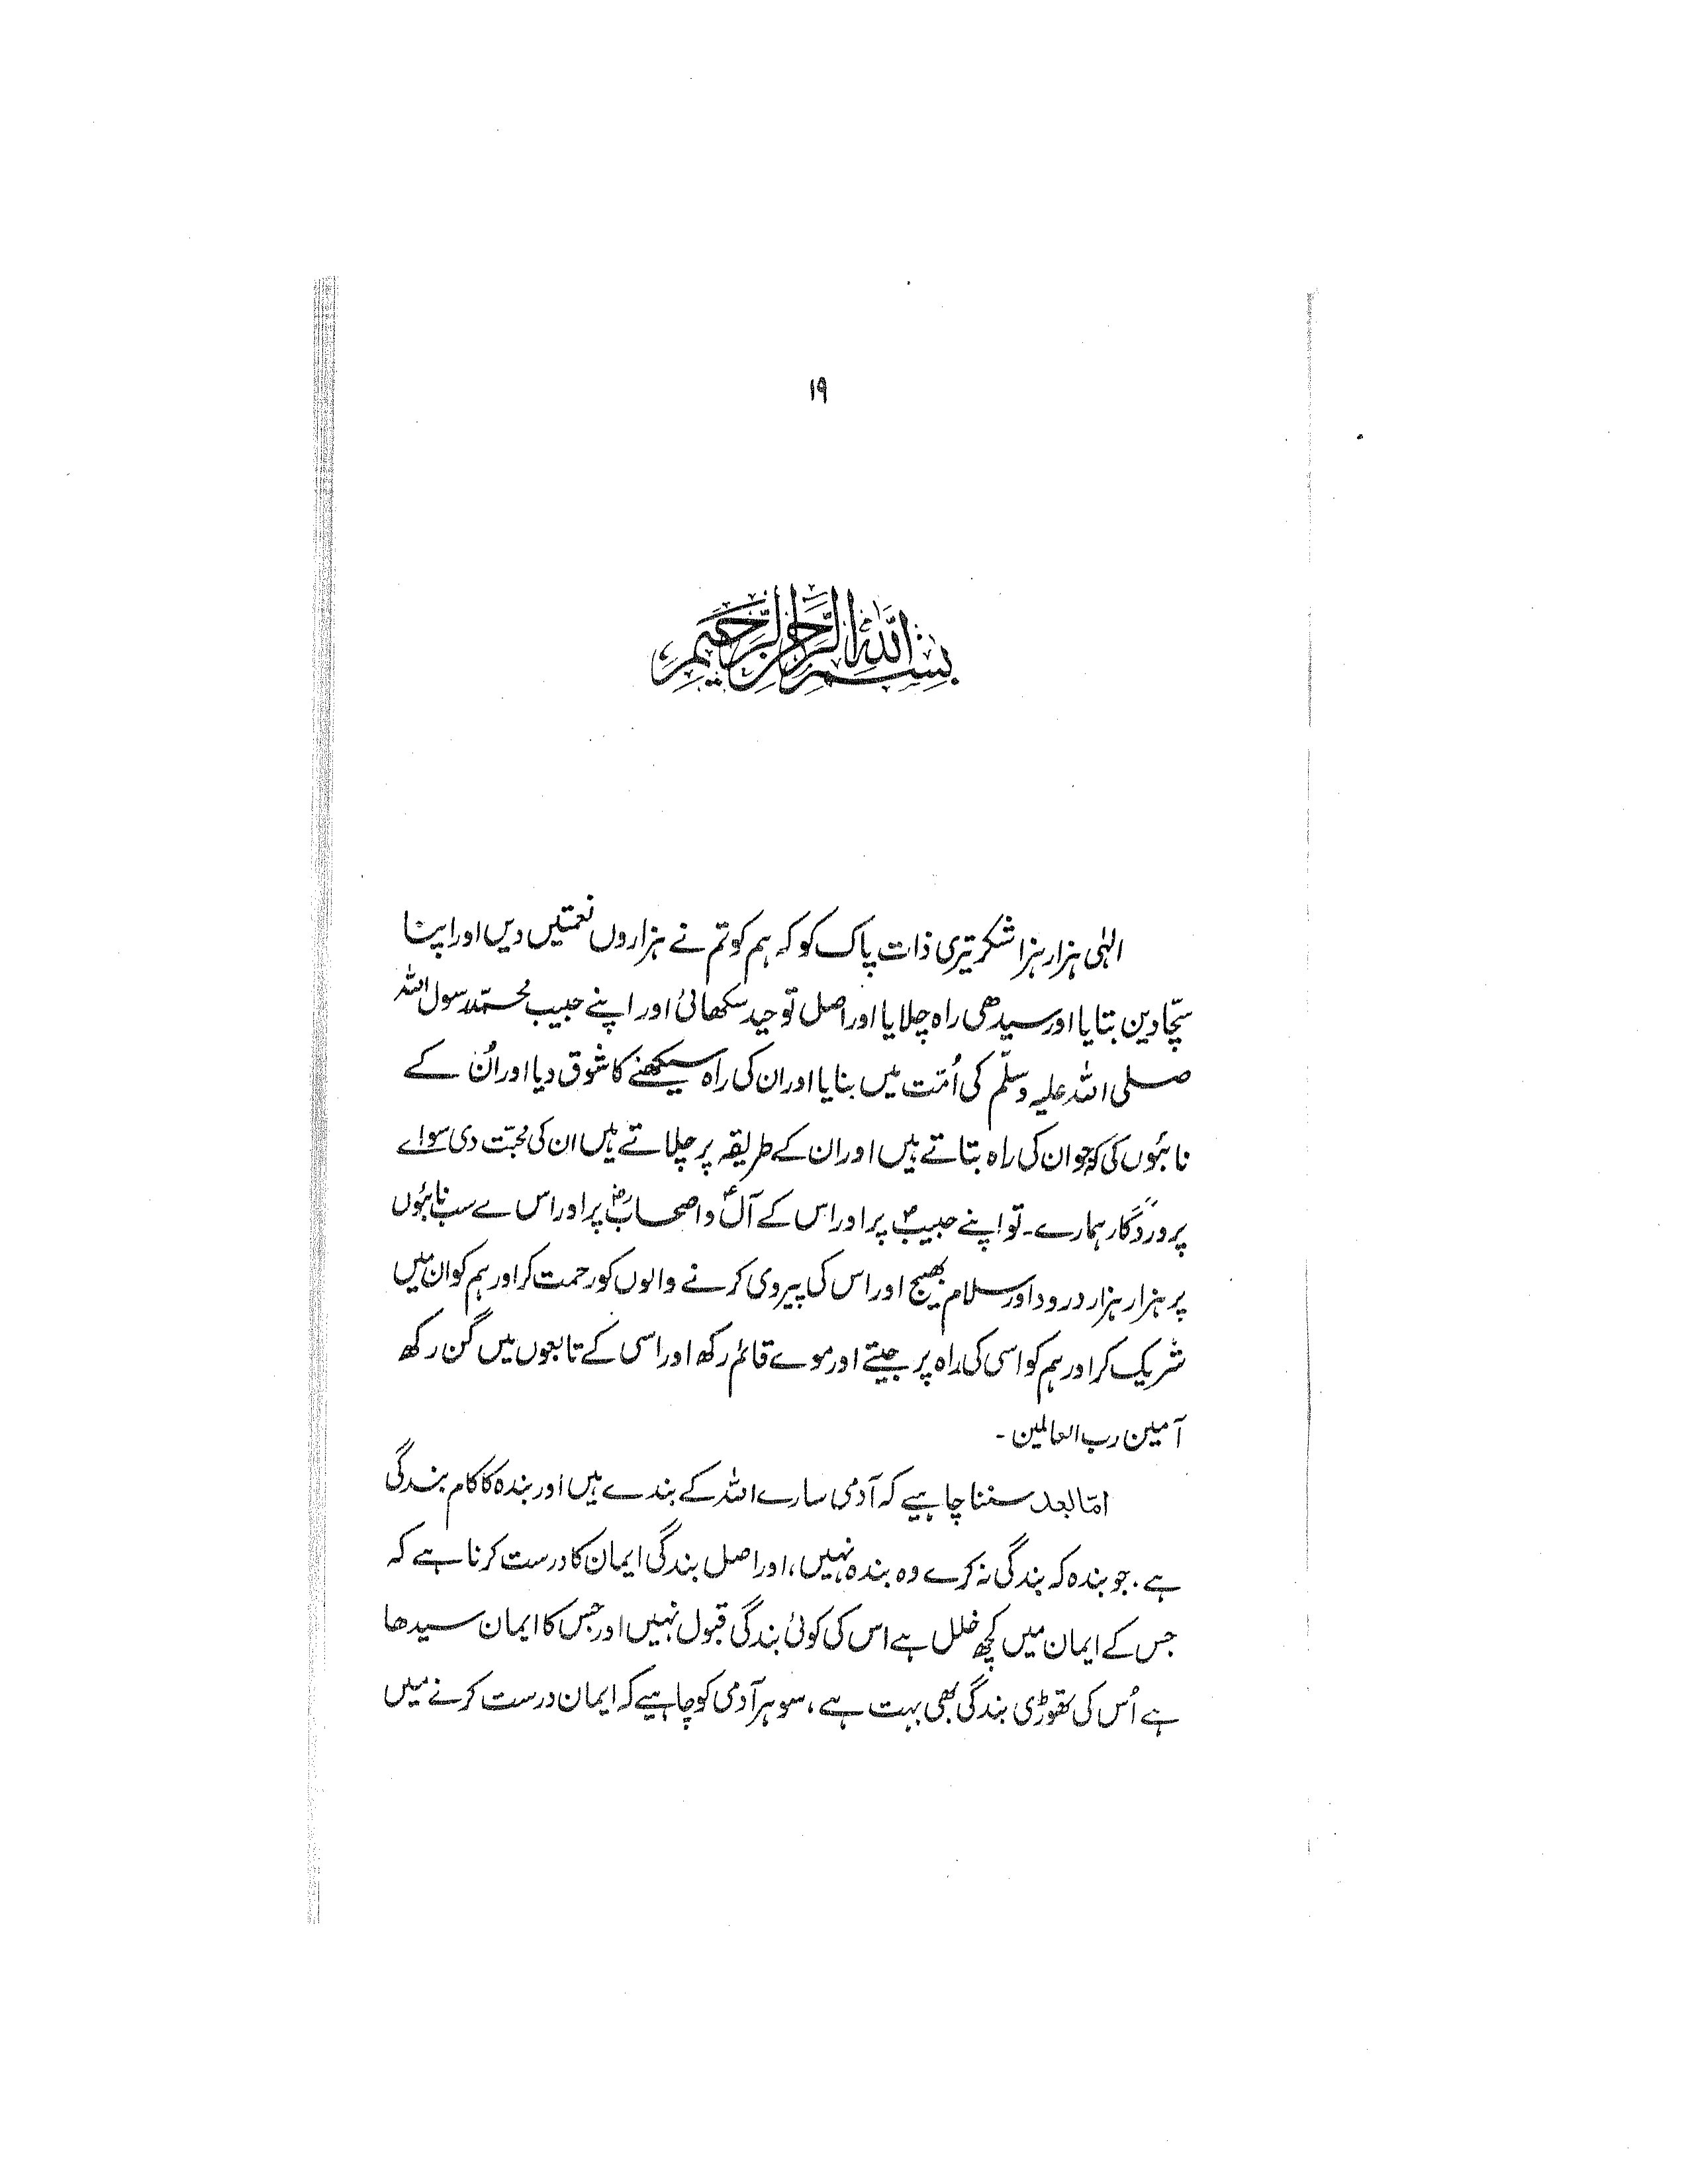 ۱۹
بسم اللہ الرحمن الرحیم
الہٰی ہزار ہزا شکر تیری ذات پاک کو کہ ہم کو تم نے ہزاروں نعمتیں دیں اور اپنا
سچّا دین بتایا اور سیدھی راہ چلایا اور اصل توحید سکھائی اور اپنے حبیب محمّد رسول اللہ
صلی اللہ علیہ وسلّم کی اُمّت میں بنایا اور ان کی راہ سیکھنے کا شوق دیا اور اُن کے
نائبوں کی کہ جو ان کی راہ بتاتے ہیں اور ان کے طریقہ پر چلاتے ہیں ان کی محبّت دی سو اے
پروردگار ہمارے۔ تو اپنے حبیبؐ پر اور اس کے آلؑ و اصحابؓ پر اور اس سے سب نائبوں
پر ہزار ہزار درود اور سلام بھیج اور اس کی پیروی کرنے والوں کو رحمت کر اور ہم کو ان میں
شریک کر اور ہم کو اسی کی راہ پر جیتے اور موے قائم رکھ اور اسی کے تابعوں میں گن رکھ
آمین رب العالمین ۔
امّا بعد سننا چاہیے کہ آدمی سارے اللہ کے بندے ہیں اور بندہ کا کام بندگی
ہے۔ جو بندہ کہ بندگی نہ کرے وہ بندہ نہیں، اور اصل بندگی ایمان کا درست کرنا ہے کہ
جس کے ایمان میں کچھ خلل ہے اس کی کوئی بندگی قبول نہیں اور جس کا ایمان سیدھا
ہے اُس کی تھوڑی بندگی بھی بہت ہے، سو ہر آدمی کو چاہیے کہ ایمان درست کرنے میں